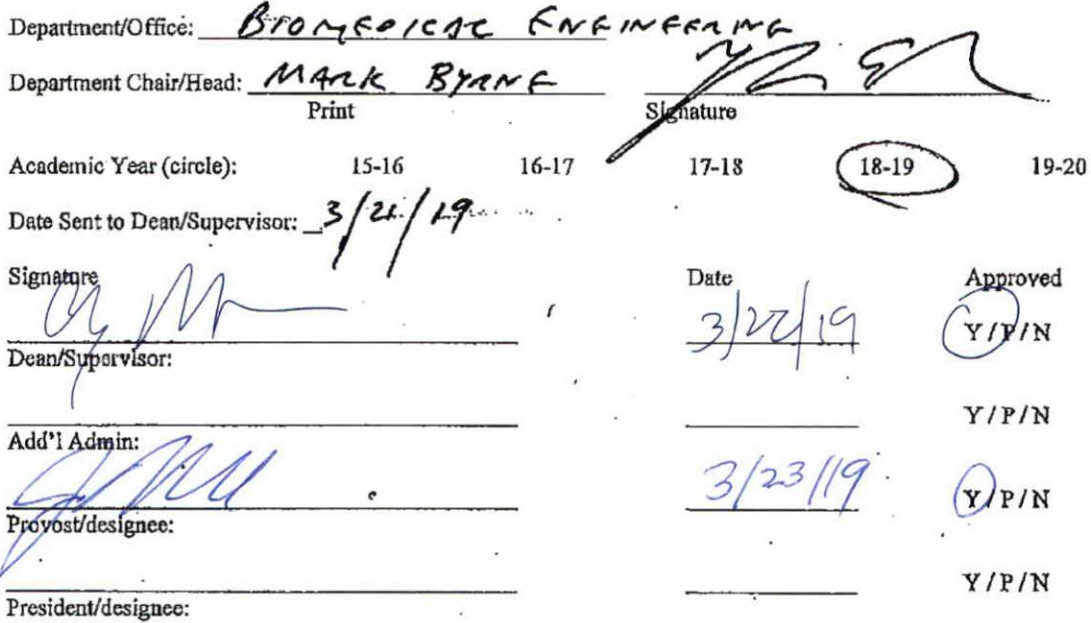 Department/Office: BIOMEDICAL ENGINEERING
Department Chair/Head: MARK BYRNE
Print Signature
Academic Year (circle): 15-16 16-17 17-18 18-19 19-20
Date Sent to Dean/Supervisor: 3/21/19
Signature Date Approved
3/22/19 Y/P/N
Dean/Supervisor:
Y/P/N
Add'l Admin:
3/23/19 Y/P/N
Provost/designee:
Y/P/N
President/designee: